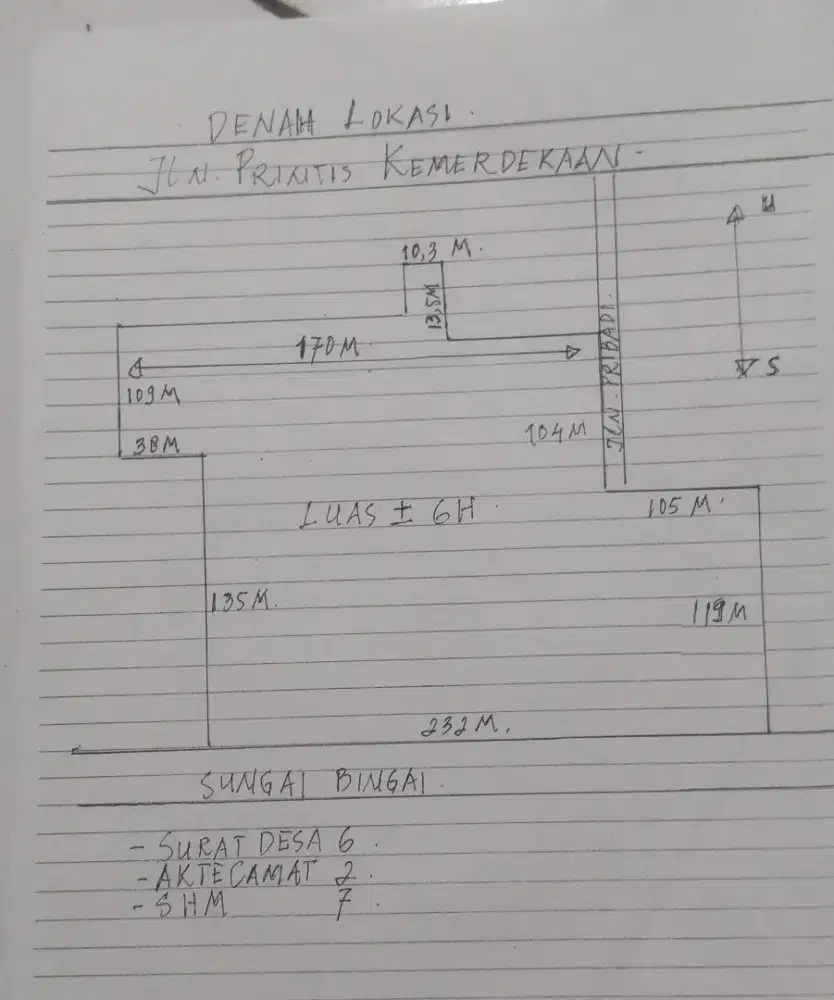 DENAH LOKASI.
JLN. PRINTIS KEMERDEKAAN.
U
10,3 M.
13,5M
170M
JLN. PRIBADI.
S
109M
104M
38M
LUAS ± 6H
105 M.
135M.
119M
232M.
SUNGAI BINGAI.
- SURAT DESA 6.
- AKTE CAMAT 2.
- SHM 7.